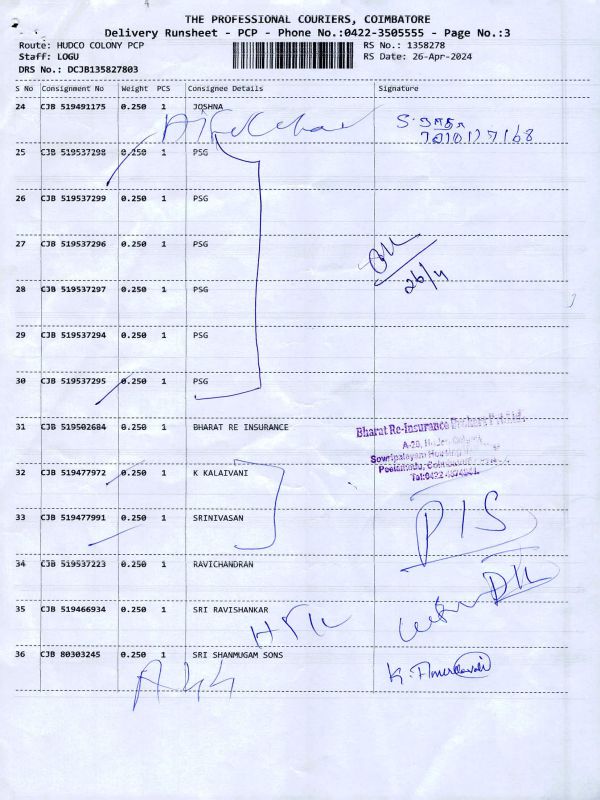 THE PROFESSIONAL COURIERS, COIMBATORE
Delivery Runsheet - PCP - Phone No.:0422-3505555 - Page No.:3
Route: HUDCO COLONY PCP RS No.: 1358278
Staff: LOGU RS Date: 26-Apr-2024
DRS No.: DCJB135827803
S No Consignment No Weight PCS Consignee Details Signature
24 CJB 519491175 0.250 1 JOSHNA
25 CJB 519537298 0.250 1 PSG
26 CJB 519537299 0.250 1 PSG
27 CJB 519537296 0.250 1 PSG
26/4
28 CJB 519537297 0.250 1 PSG
29 CJB 519537294 0.250 1 PSG
30 CJB 519537295 0.250 1 PSG
31 CJB 519502684 0.250 1 BHARAT RE INSURANCE
Bharat Re-Insurance Brokers Pvt Ltd.
Sowripalayam
Peelamedu,
32 CJB 519477972 0.250 1 K KALAIVANI
33 CJB 519477991 0.250 1 SRINIVASAN
34 CJB 519537223 0.250 1 RAVICHANDRAN
35 CJB 519466934 0.250 1 SRI RAVISHANKAR
36 CJB 80303245 0.250 1 SRI SHANMUGAM SONS